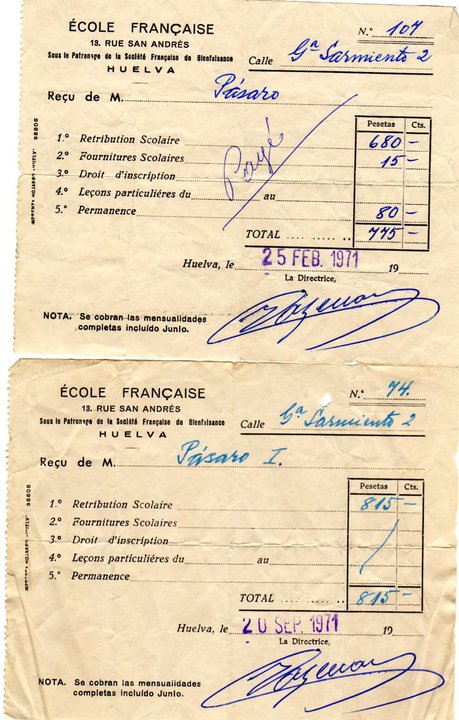 ÉCOLE FRANÇAISE
13. RUE SAN ANDRÉS
Sous le Patronage de la Société Française de Bienfaisance
HUELVA
N.º 107
Calle Gª Sarmiento 2
Reçu de M. Pásaro
Pesetas Cts.
1.º Retribution Scolaire 680 -
2.º Fournitures Scolaires 15 -
3.º Droit d'inscription
4.º Leçons particuliéres du au
5.º Permanence 80 -
Payé
TOTAL 775 -
Huelva, le 25 FEB. 1971 19
La Directrice,
NOTA. Se cobran las mensualidades
completas incluído Junio.
ÉCOLE FRANÇAISE
13. RUE SAN ANDRÉS
Sous le Patronage de la Société Française de Bienfaisance
HUELVA
N.º 74.
Calle Gª Sarmiento 2
Reçu de M. Pásaro I.
Pesetas Cts.
1.º Retribution Scolaire 815 -
2.º Fournitures Scolaires
3.º Droit d'inscription
4.º Leçons particuliéres du au
5.º Permanence
TOTAL 815 -
Huelva, le 20 SEP. 1971 19
La Directrice,
NOTA. Se cobran las mensualidades
completas incluído Junio.